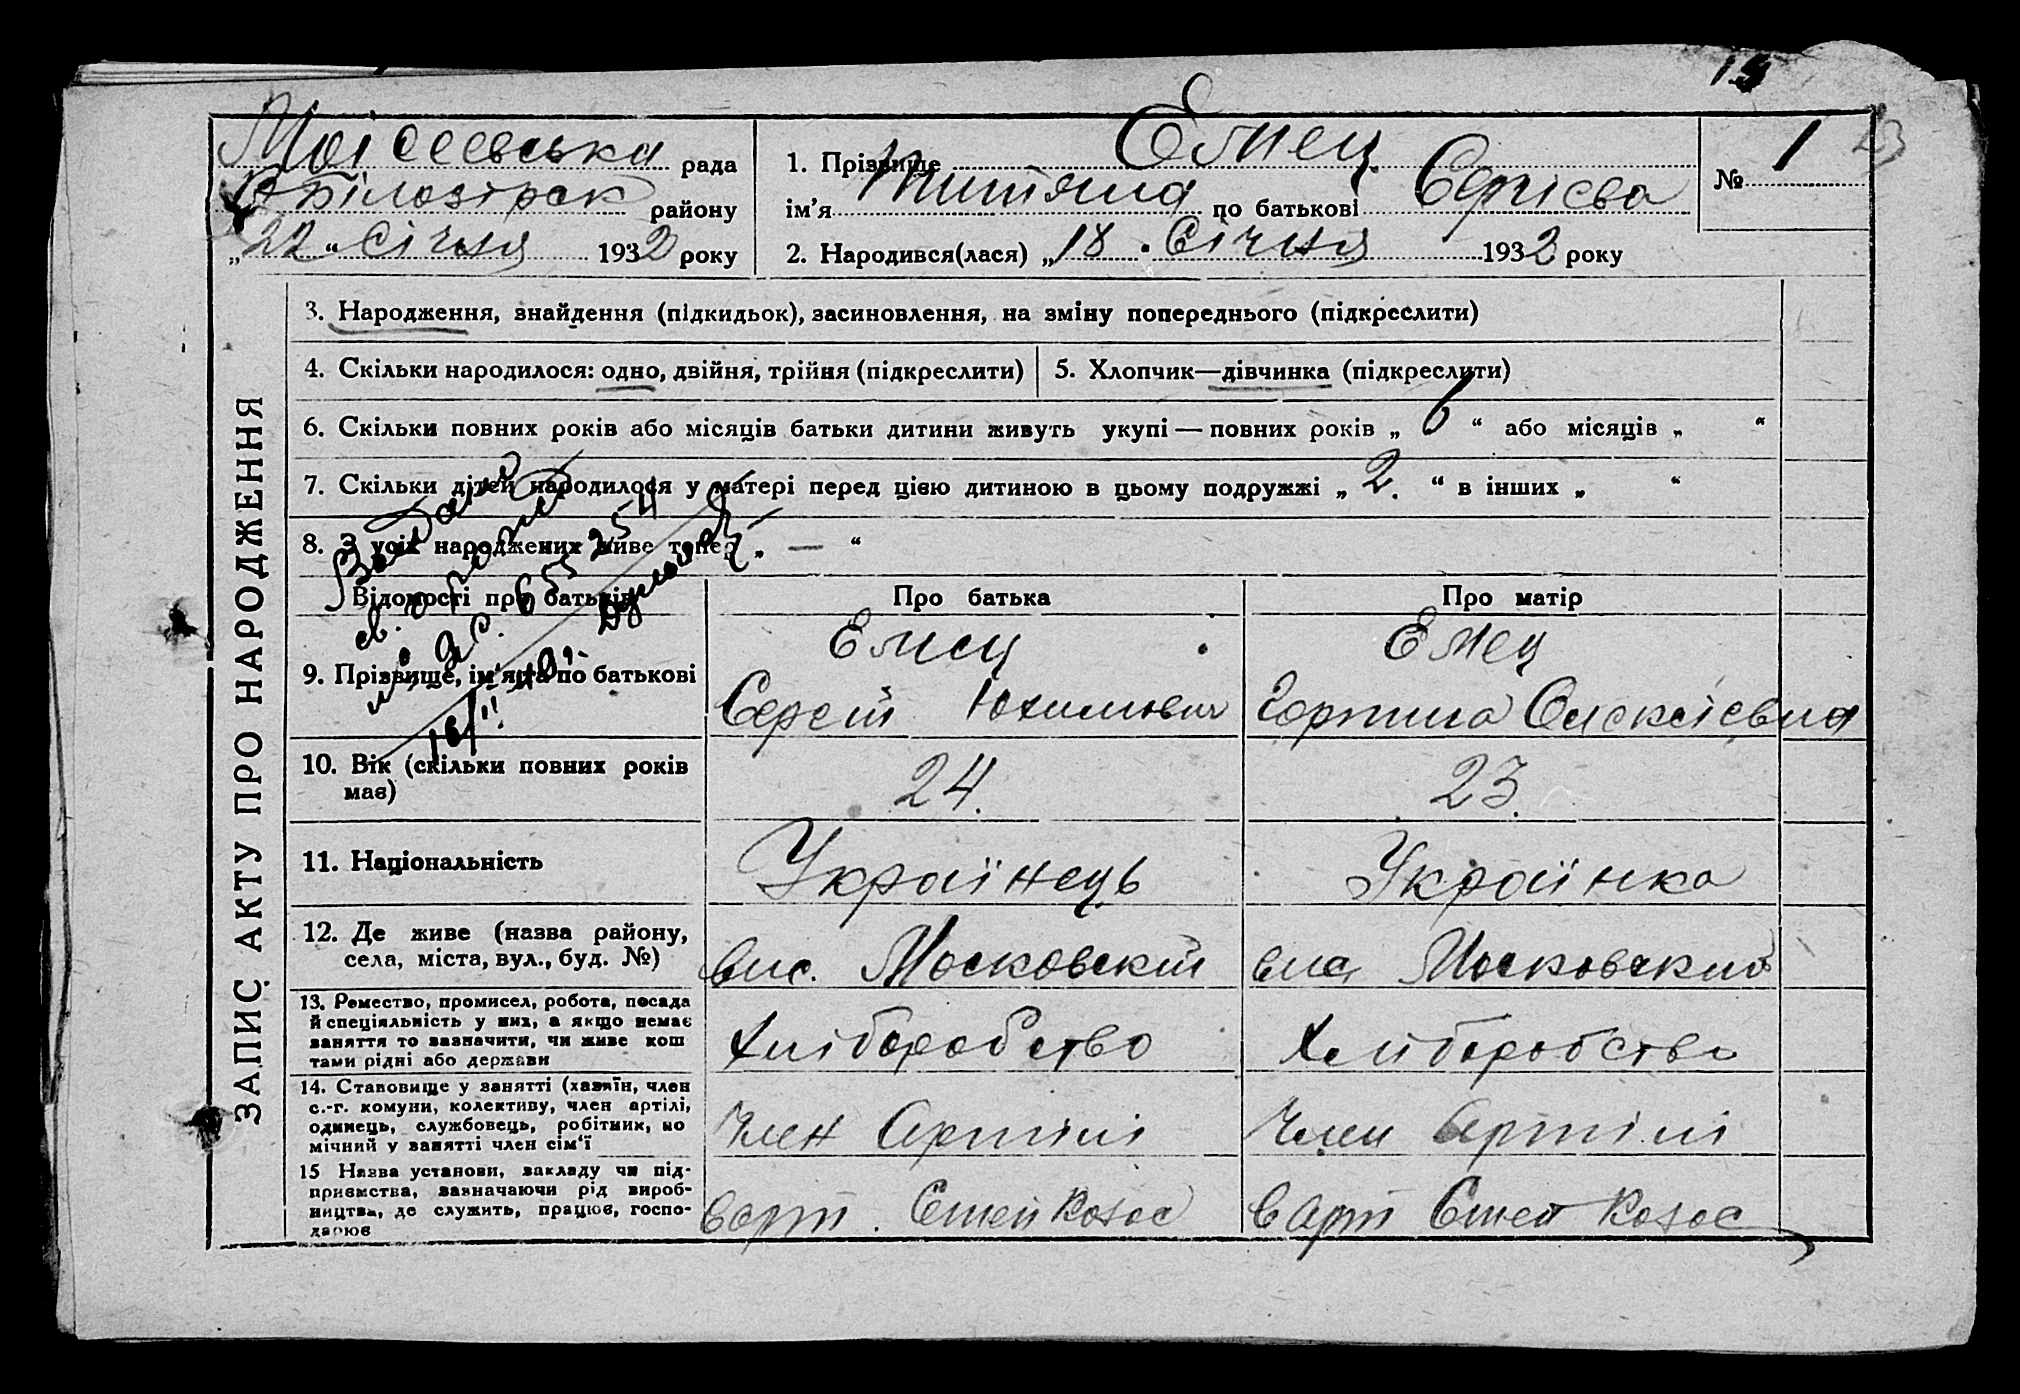 Моісеевська рада
В Білозірск району
„22“ Січня 1932 року
1. Прізвище Емец
ім’я Титяна по батькові Сергієва
№ 1
2. Народився(лася) „18 Січня 1932 року
ЗАПИС АКТУ ПРО НАРОДЖЕННЯ
3. Народження, знайдення (підкидьок), засиновлення, на зміну попереднього (підкреслити)
4. Скільки народилося: одно, двійня, трійня (підкреслити)
5. Хлопчик—дівчинка (підкреслити)
6. Скільки повних років або місяців батьки дитини живуть укупі — повних років „ 6 “ або місяців „ “
7. Скільки дітей народилося у матері перед цією дитиною в цьому подружжі „ 2. “ в інших „ “
8. З усіх народжених живе тепер „ — “
Відомості про батьків
Про батька
Про матір
9. Прізвище, ім’я та по батькові
Емец
Сергій Юхимович
Емец
Горпина Олексієвна
10. Вік (скільки повних років має)
24.
23.
11. Національність
Українець
Українка
12. Де живе (назва району, села, міста, вул., буд. №)
вис. Московский
вис Московский
13. Ремество, промисел, робота, посада
й спеціяльність у них, а якщо немає
заняття то зазначити, чи живе кош
тами рідні або держави
Хліборобство
Хліборобство
14. Становище у занятті (хазяїн, член
с.-г. комуни, колективу, член артілі,
одинець, службовець, робітник, по
мічний у занятті член сім’ї
Член Артілі
Член Артілі
15 Назва установи, закладу чи під-
приємства, зазначаючи рід вироб-
ництва, де служить, працює, госпо-
дарює
В арт.
В арт
655254